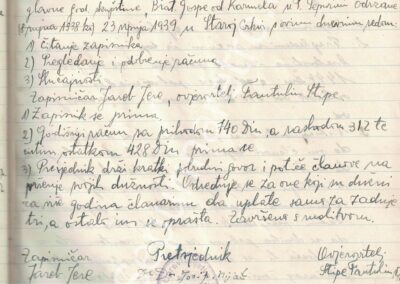 glavne god. skupštine, Brat. Gospe od Karmela u Š. Sepurini održane
23 srpnja 1939 u Staroj Crkvi, s ovim dnevnim redom:
1) Čitanje zapisnika
2) Pregledanje i odobrenje računa
3) Slučajnosti
Zapisničar Jareb Jere, ovjerovitelj Fantulin Stipe.
1) Zapisnik se prima.
2) Godišnji račun sa prihodom 740 Din, a rashodom 312 te
ostatkom 428 din prima se.
3) Pretsjednik drži kratki govor i potiče članove na
vršenje svojih dužnosti. Određuje se za one koji su dužni
za više godina članarinu da uplate samo za zadnje
tri, a ostalo im se oprašta. Završeno s molitvom.
Zapisničar Pretsjednik Ovjerovitelj
Jareb Jere Stipe Fantulin